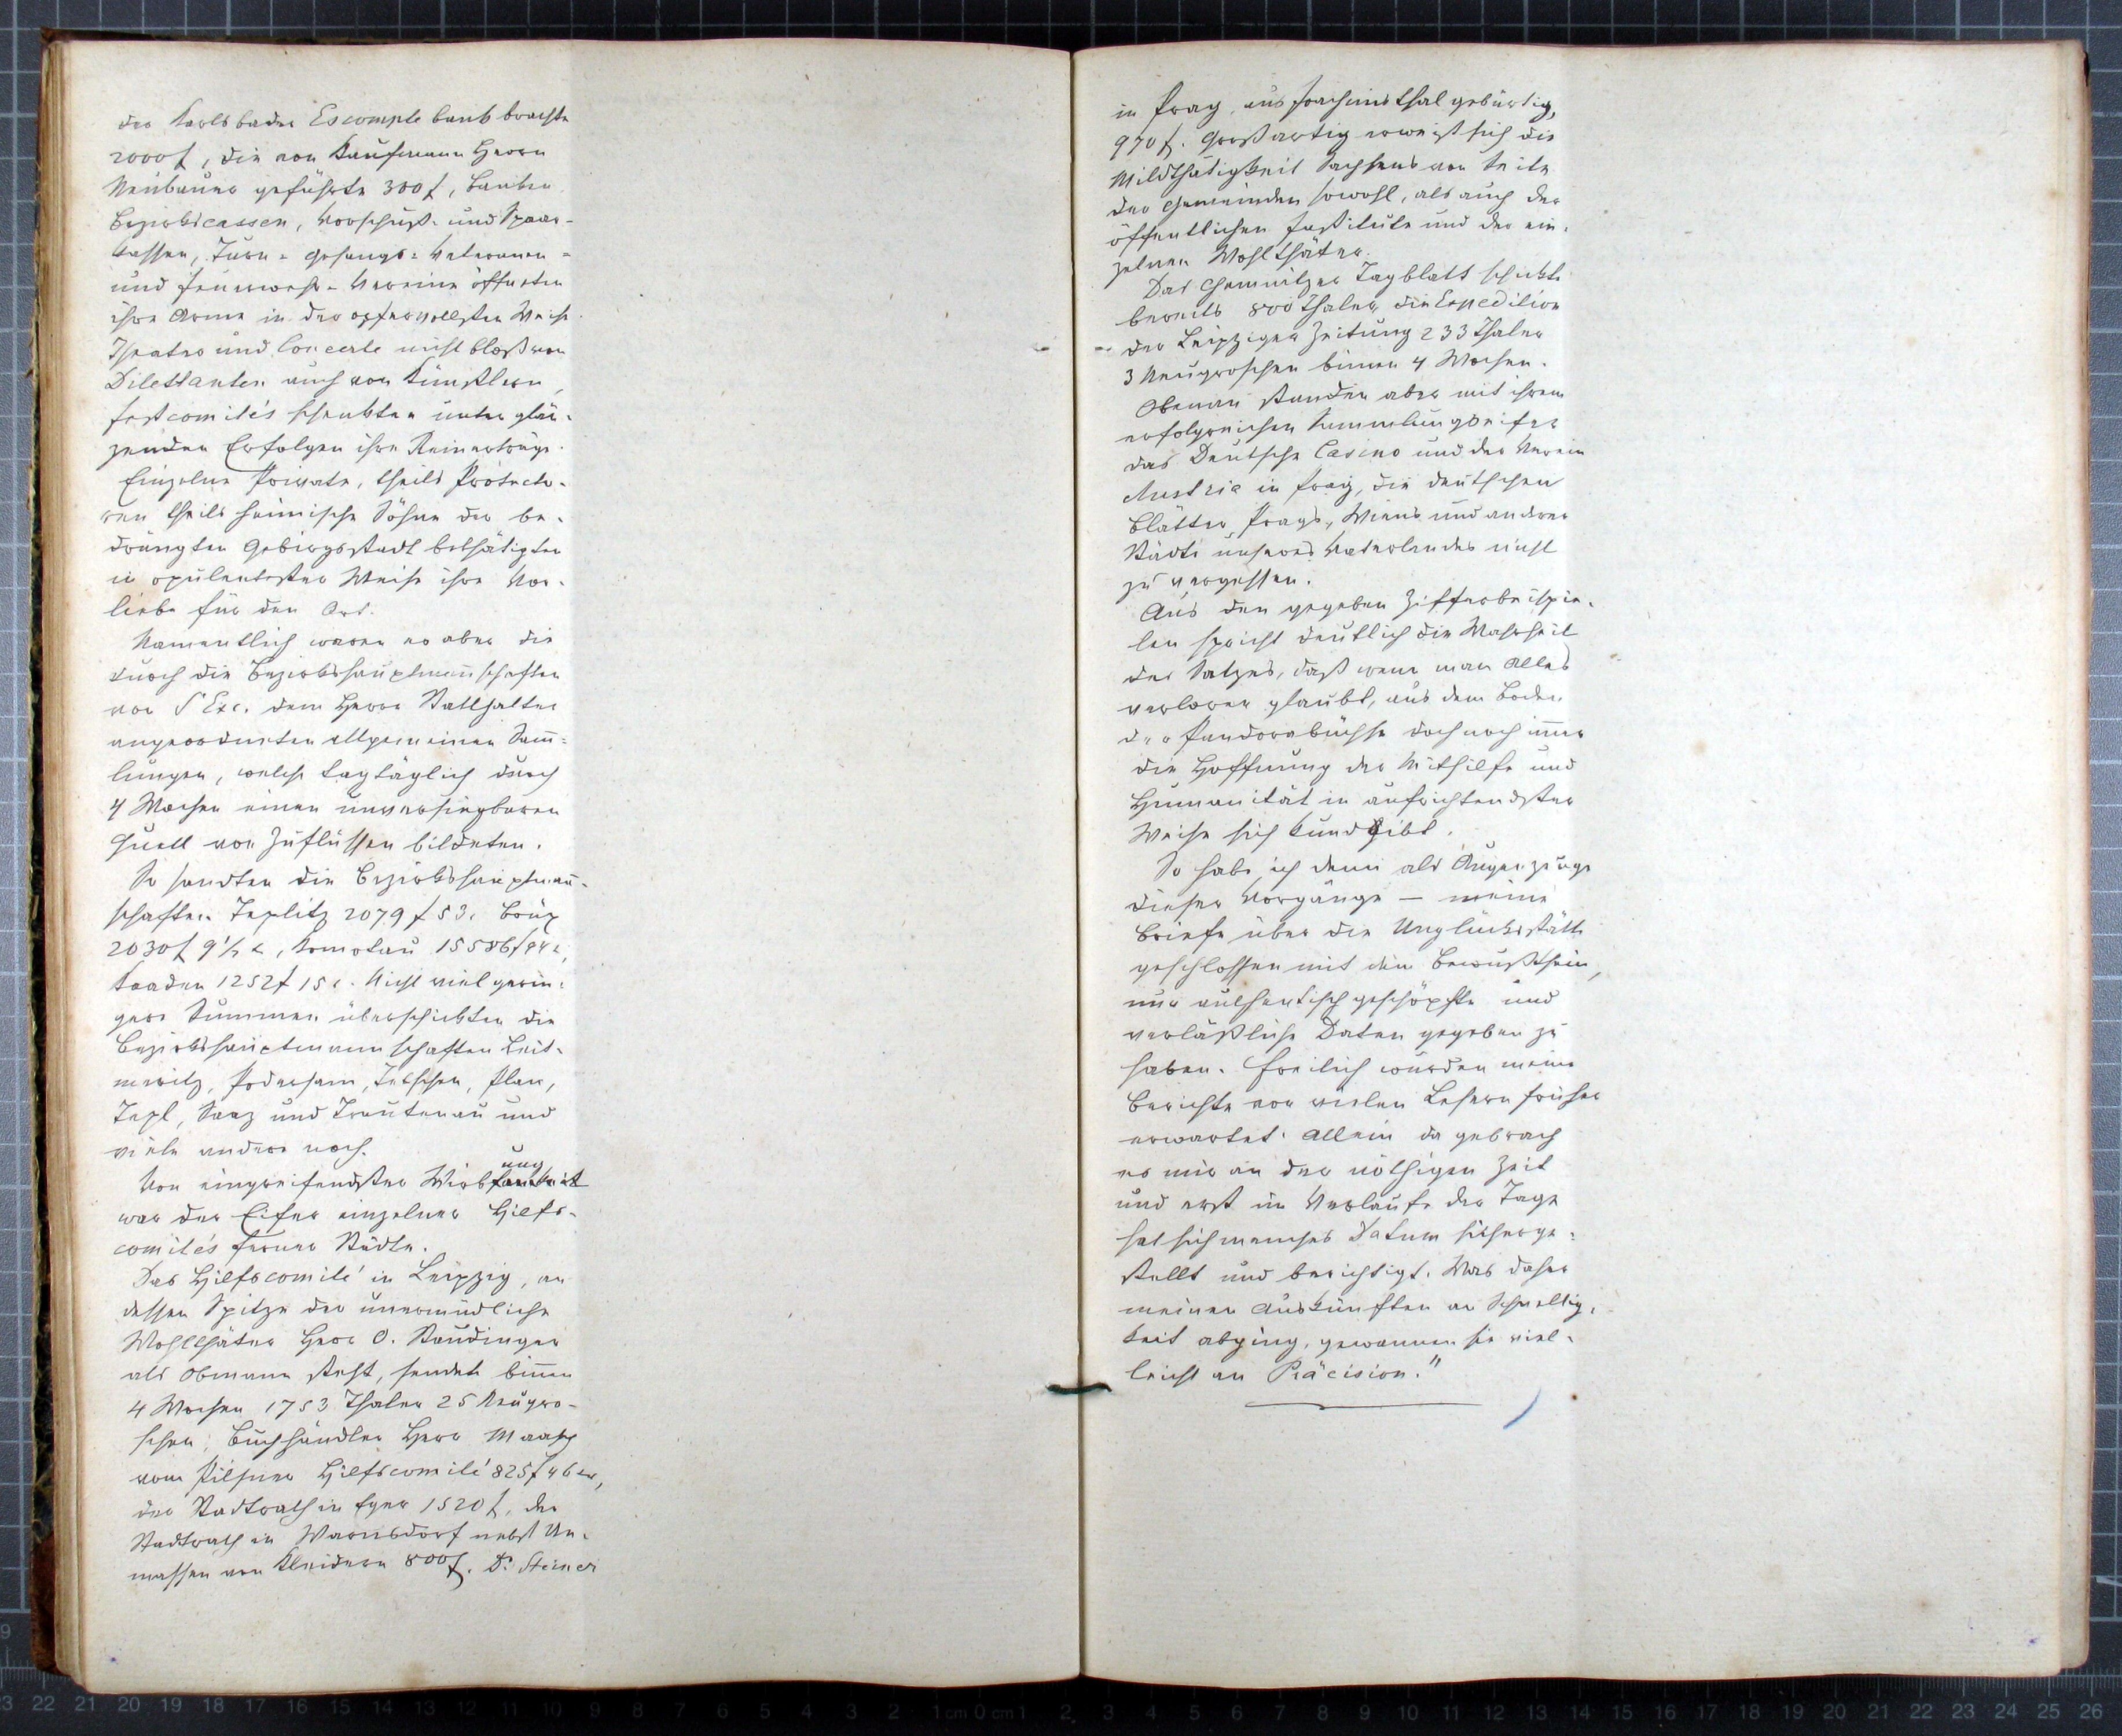 der Karlsbader Escomptebank brachte
2000 f, die von Kaufmann Herrn
Neubauer geführte 300 f, Banken
Bezirkscassen, Vorschuß- und Spaar-
kassen, Turn- Gesangs- Veteranen-
und Feuerwehr-Vereine öffneten
ihre Arme in der opfervollsten Weise.
Theater und Concerte nicht bloß von
Dilettanten auch von Künstlern,
Festcomités schenkten unter glän-
zenden Erfolgen ihre Reinerträge.
Einzelne Private, theils Protecto-
ren theils heimische Söhne der be-
drängten Gebirgsstadt bethätigten
in opulentester Weise ihre Vor-
liebe für den Ort.
Namentlich waren es aber die
durch die Bezirkshauptmannschaften
von S Exc. dem Herrn Statthalter
angeordneten allgemeinen Samm-
lungen, welche tagtäglich durch
4 Wochen einen unversiegbaren
Quell von Zuflüssen bildeten.
So sandten die Bezirkshauptmann-
schaften Teplitz 2079 f 53, Brüx
2030 f 9½ x, Komotau 15586 f 94 x,
Kaaden 1252 f 15 x. Nicht viel gerin-
gere Summen überschickten die
Bezirkshauptmannschaften Leit-
meritz, Podersam, Tetschen, Plan,
Tepl, Saaz und Trautenau und
viele andere noch.
Von eingreifendster Wirksamkeit ung
war der Eifer einzelner Hilfs-
comités ferner Städte.
Das Hilfscomité in Leipzig, an
dessen Spitze der unermüdliche
Wohlthäter Herr O. Staudinger
als Obmann steht, sendete binnen
4 Wochen 1753 Thaler 25 Neugro-
schen, Buchhändler Herr Maasch
vom Pilsner Hilfscomité 825 f 46 xr,
der Stadtrath in Eger 1520 f, der
Stadtrath in Warnsdorf nebst Un-
massen von Kleidern 800 f. Dr Steiner
in Prag aus Joachimsthal gebürtig,
970 f. Großartig erweist sich die
Mildthätigkeit Sachsens von Seite
der Gemeinden sowohl, als auch der
öffentlichen Institute und der ein-
zelnen Wohlthäter.
Das Chemnitzer Tagblatt schickte
bereits 800 Thaler, die Expedition
der Leipziger Zeitung 233 Thaler
3 Neugroschen binnen 4 Wochen.
Obenan standen aber mit ihrem
erfolgreichen Sammlungseifer
das Deutsche Casino und der Verein
Austria in Prag, die deutschen
Blätter Prags, Wiens und anderer
Städte unseres Vaterlandes nicht
zu vergessen.
Aus den gegeben Zifferbeispie-
len spricht deutlich die Wahrheit
des Satzes, daß wenn man Alles
verloren glaubt, aus dem Boden
der Pandorabüchse doch noch immer
die Hoffnung der Mithilfe und
Humanität in aufrichtendster
Weise sich kundgibt.
So habe ich denn als Augenzeuge
dieser Vorgänge — meine
Briefe über die Unglücksstätte
geschlossen mit dem Bewußtsein,
nur authentisch geschöpfte und
verläßliche Daten gegeben zu
haben. Freilich wurden meine
Berichte von vielen Lesern früher
erwartet. Allein da gebrach
es mir an der nöthigen Zeit
und erst im Verlaufe der Tage
hat sich manches Datum sicherge-
stellt und berichtigt. Was daher
meinen Auskünften an Schnellig-
keit abging, gewannen sie viel-
leicht an Präcision."